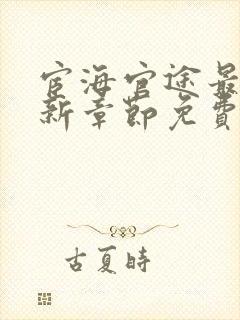 宦海官途最
新章节免费
古夏時